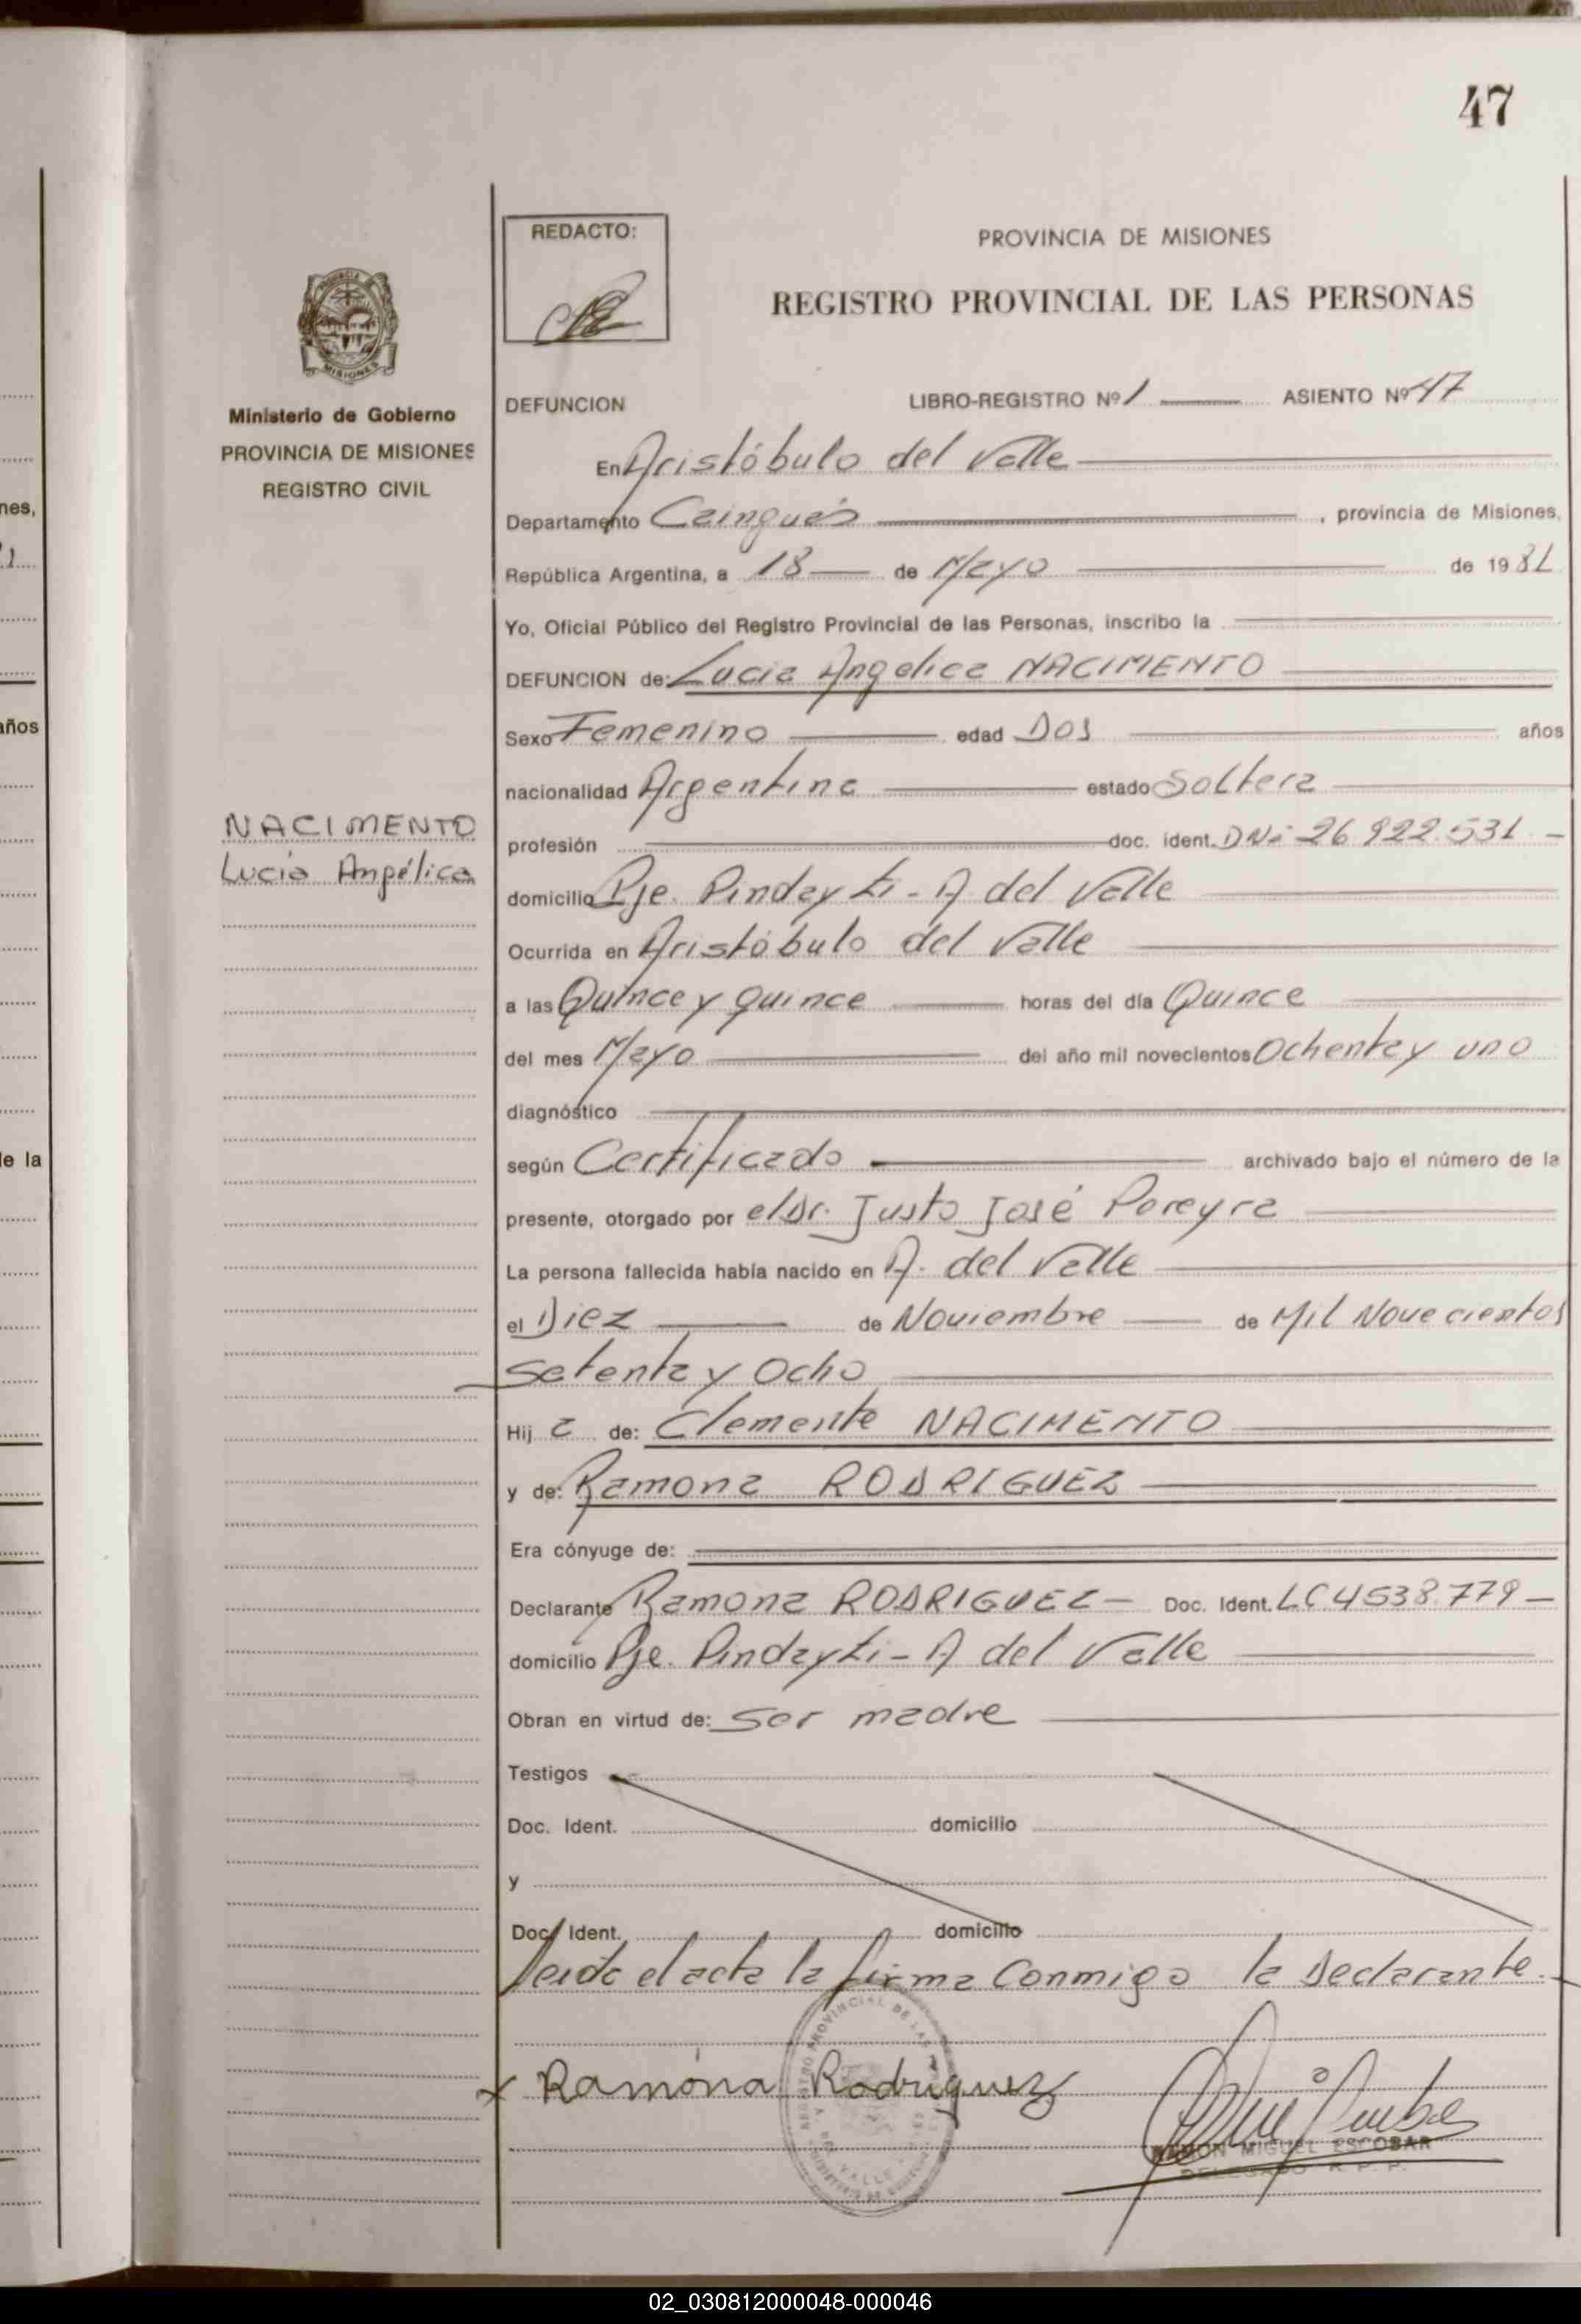 47
REDACTO:
PROVINCIA DE MISIONES
REGISTRO PROVINCIAL DE LAS PERSONAS
PROVINCIA
MISIONES
Ministerio de Gobierno
PROVINCIA DE MISIONES
REGISTRO CIVIL
DEFUNCION LIBRO-REGISTRO Nº 1 ASIENTO Nº 47
En Aristóbulo del Valle
Departamento Cainguás, provincia de Misiones,
República Argentina, a 18 de Mayo de 1981
Yo, Oficial Público del Registro Provincial de las Personas, inscribo la
DEFUNCION de: Lucia Angelica NACIMENTO
Sexo Femenino edad Dos años
nacionalidad Argentina estado Soltera
NACIMENTO
Lucia Angélica
profesión doc. ident. DNi 26.922.531.-
domicilio Pje. Pindayti - A. del Valle
Ocurrida en Aristóbulo del Valle
a las Quince y quince horas del día Quince
del mes Mayo del año mil novecientos Ochenta y uno
diagnóstico
según Certificado archivado bajo el número de la
presente, otorgado por el Dr. Justo José Pereyra
La persona fallecida había nacido en A. del Valle
el Diez de Noviembre de Mil Novecientos
setenta y Ocho
Hij a de: Clemente NACIMENTO
y de: Ramona RODRIGUEZ
Era cónyuge de:
Declarante Ramona RODRIGUEZ - Doc. Ident. LC 4538.779 -
domicilio Pje. Pindayti - A del Valle
Obran en virtud de: Ser madre
Testigos
Doc. Ident. domicilio
y
Doc. Ident. domicilio
Leida el acta la firma Conmigo la Declarante.-
x Ramona Rodriguez
RAMON MIGUEL ESCOBAR
DELEGADO R. P. P.
nes,
años
le la
02_030812000048-000046